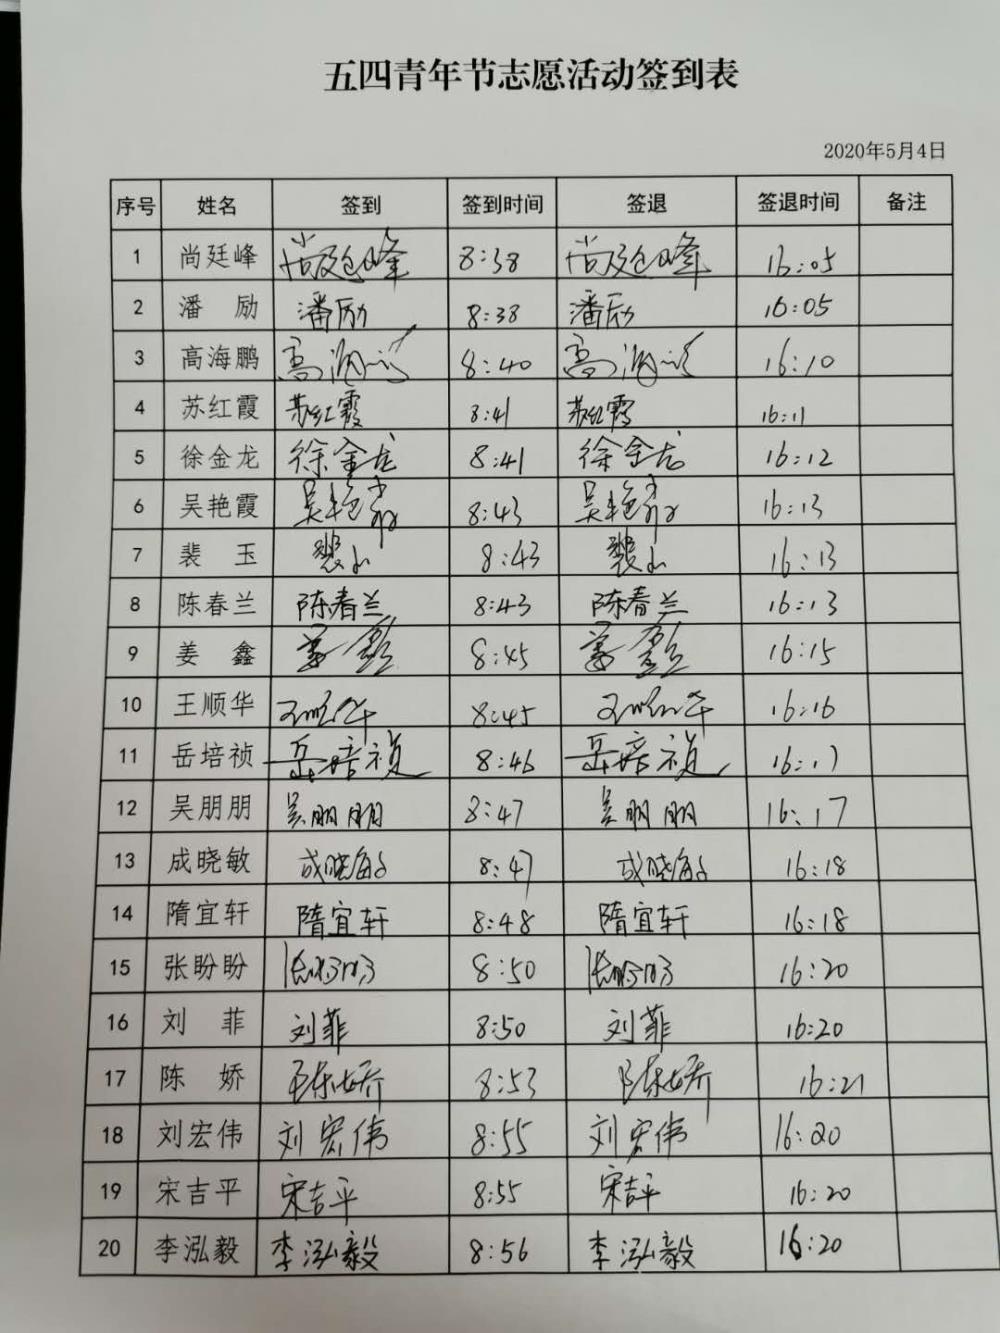 五四青年节志愿活动签到表
2020年5月4日
序号 姓名 签到 签到时间 签退 签退时间 备注
1 尚廷峰 尚廷峰 8:38 尚廷峰 16:05
2 潘励 潘励 8:38 潘励 16:05
3 高海鹏 高海鹏 8:40 高海鹏 16:10
4 苏红霞 苏红霞 8:41 苏红霞 16:11
5 徐金龙 徐金龙 8:41 徐金龙 16:12
6 吴艳霞 吴艳霞 8:43 吴艳霞 16:13
7 裴玉 裴玉 8:43 裴玉 16:13
8 陈春兰 陈春兰 8:43 陈春兰 16:13
9 姜鑫 姜鑫 8:45 姜鑫 16:15
10 王顺华 王顺华 8:45 王顺华 16:16
11 岳培祯 岳培祯 8:46 岳培祯 16:17
12 吴朋朋 吴朋朋 8:47 吴朋朋 16:17
13 成晓敏 成晓敏 8:47 成晓敏 16:18
14 隋宜轩 隋宜轩 8:48 隋宜轩 16:18
15 张盼盼 张盼盼 8:50 张盼盼 16:20
16 刘菲 刘菲 8:50 刘菲 16:20
17 陈娇 陈娇 8:53 陈娇 16:21
18 刘宏伟 刘宏伟 8:55 刘宏伟 16:20
19 宋吉平 宋吉平 8:55 宋吉平 16:20
20 李泓毅 李泓毅 8:56 李泓毅 16:20